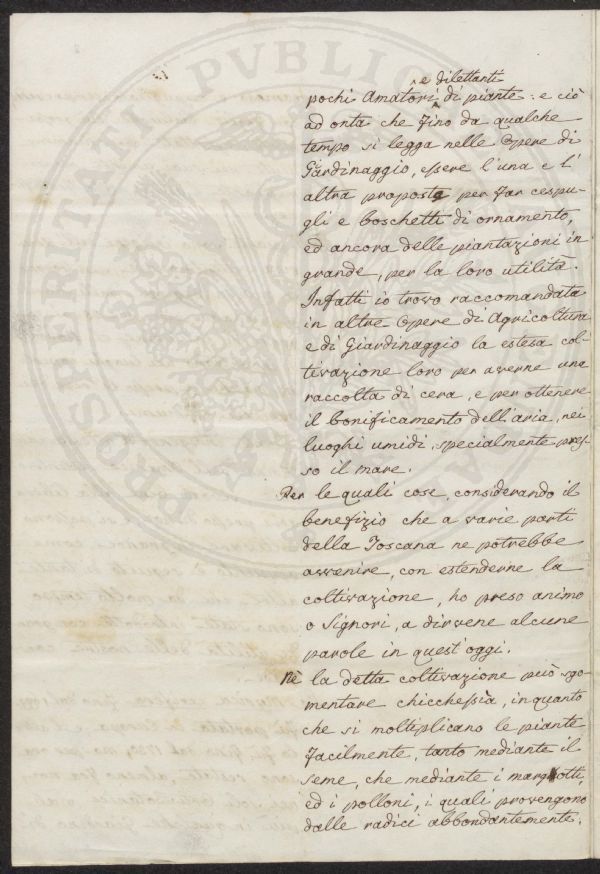 e dilettanti
pochi Amatori di piante: e ciò
ad onta che fino da qualche
tempo si legga nelle Opere di
Giardinaggio, essere l'una e l'
altra proposte per far cespu-
gli e boschetti di ornamento,
ed ancora delle piantazioni in
grande, per la loro utilità.
Infatti io trovo raccomandata
in altre Opere di Agricoltura
e di Giardinaggio la estesa col-
tivazione loro per averne una
raccolta di cera, e per ottenere
il bonificamento dell'aria, nei
luoghi umidi, specialmente pres-
so il mare.
Per le quali cose, considerando il
benefizio che a varie parti
della Toscana ne potrebbe
avvenire, con estenderne la
coltivazione, ho preso animo
o Signori, a dirvene alcune
parole in quest'oggi.
Nè la detta coltivazione può sgo-
mentare chicchessia, inquanto
che si moltiplicano le piante
facilmente, tanto mediante il
seme, che mediante i margotti,
ed i polloni, i quali provengono
dalle radici abbondantemente.
PROSPERITATI PUBLICAE